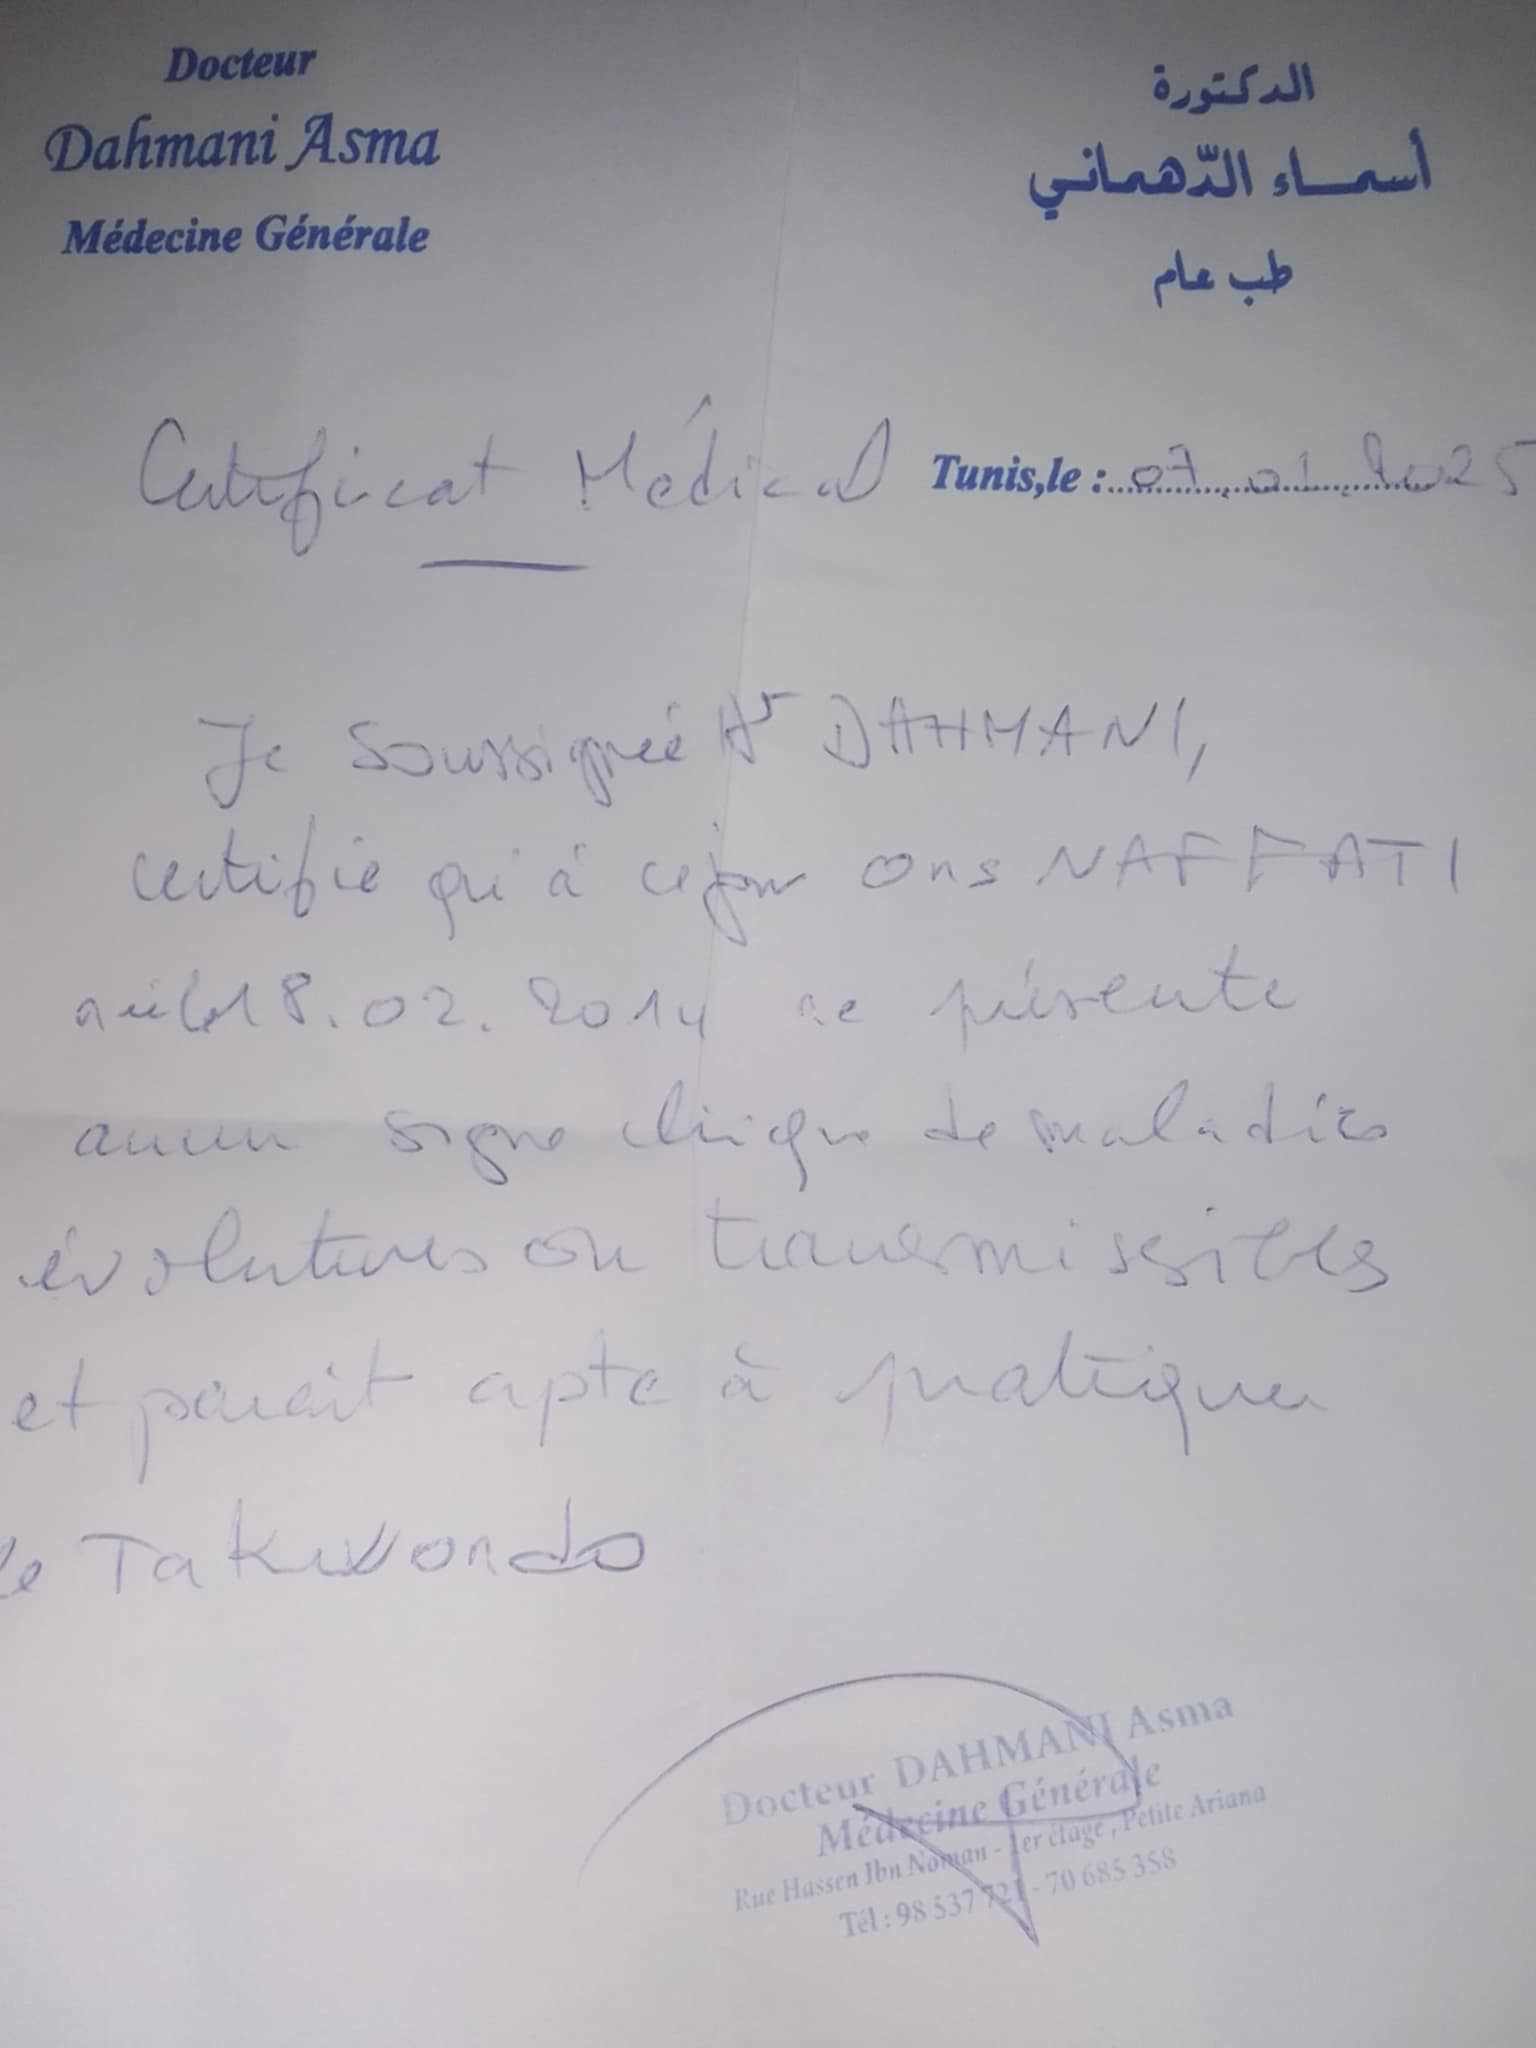 Docteur
Dahmani Asma
Médecine Générale
الدكتورة
أسماء الدّهماني
طب عام
Certificat Médical
Tunis,le : 07.01.2025
Je soussignée Dr DAHMANI,
certifie qu'à ce jour Ons NAFFATI
née le 18.02.2014 ne présente
aucun signe clinique de maladies
évolutives ou transmissibles
et parait apte à pratiquer
le Takwondo
Docteur DAHMANI Asma
Médecine Générale
Rue Hassen Ibn Noman - 1er étage , Petite Ariana
Tél : 98 537 721 - 70 685 358